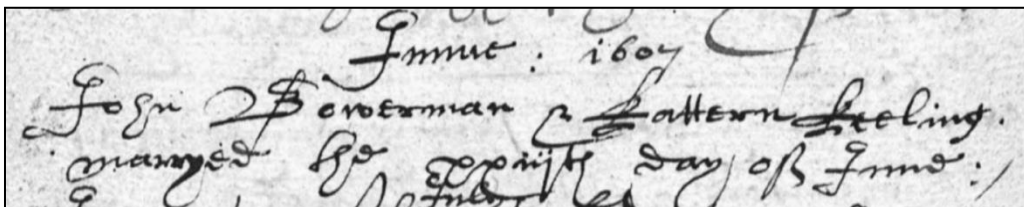 Junne : 1607
John Bowerman & Kattern Keeling.
marryed the xxiith day of June :